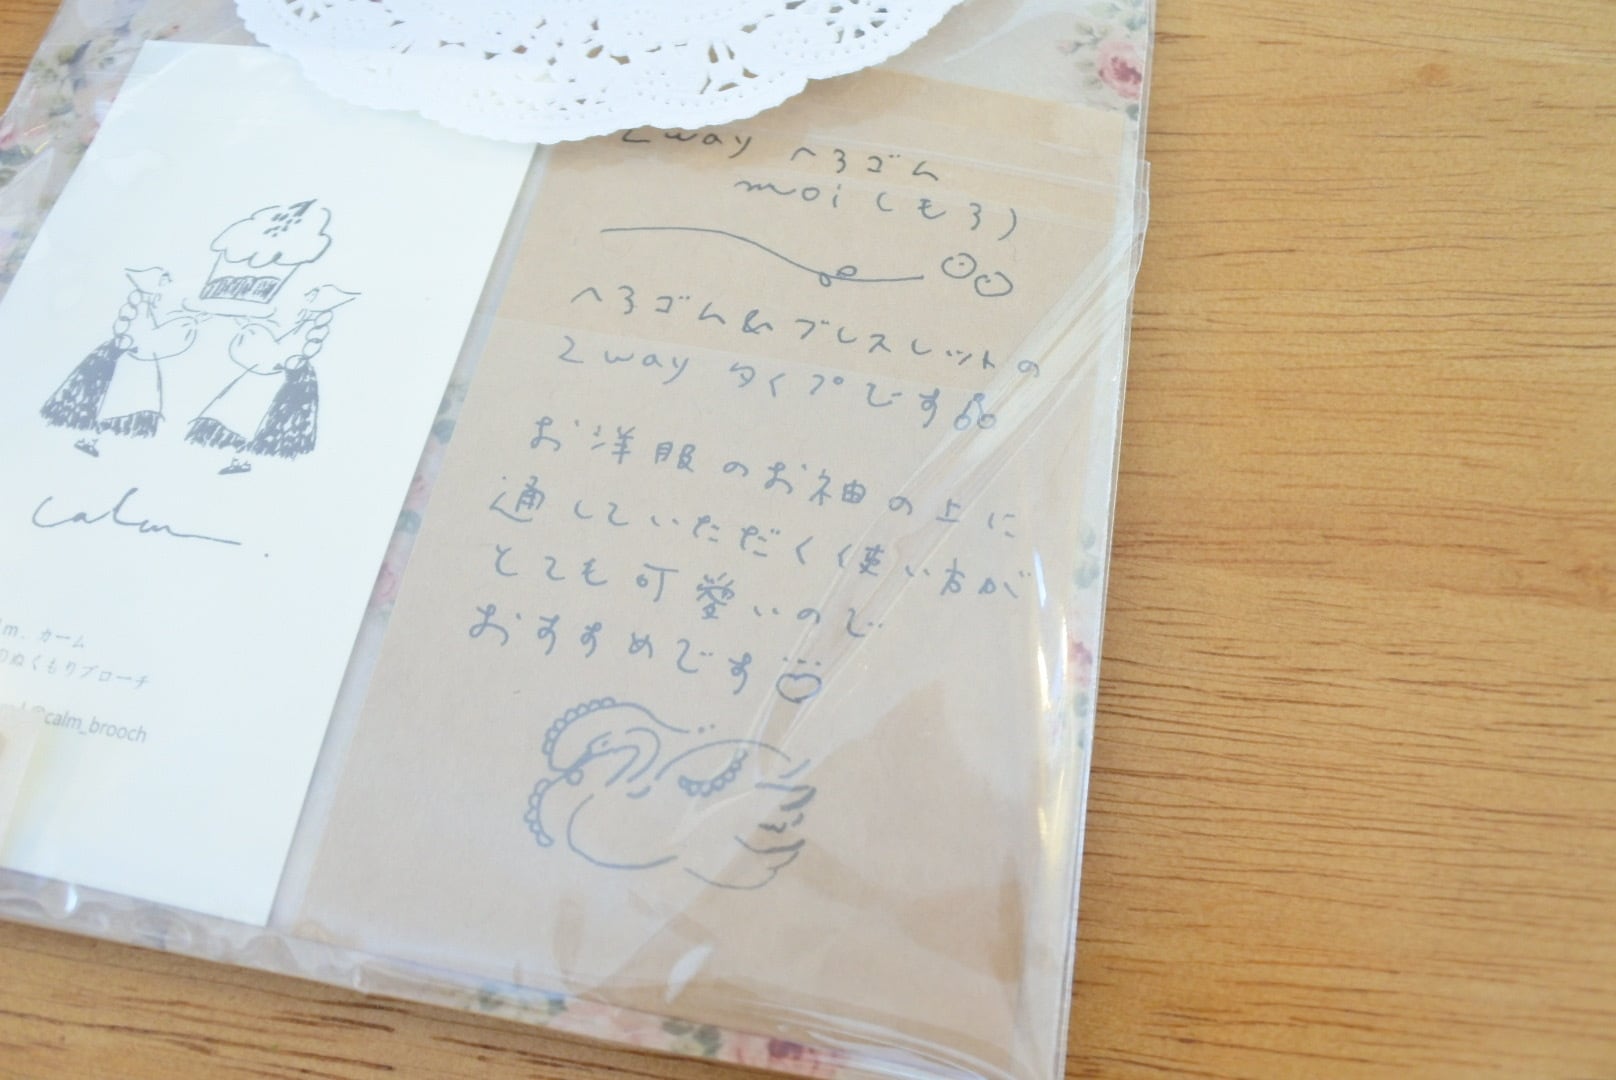 calm.
カーム
のぬくもりブローチ
@calm_brooch
2way ヘアゴム
moi (モア)
ヘアゴム&ブレスレットの
2way タイプです
お洋服のお袖の上に
通していただく使い方が
とても可愛いので
おすすめです